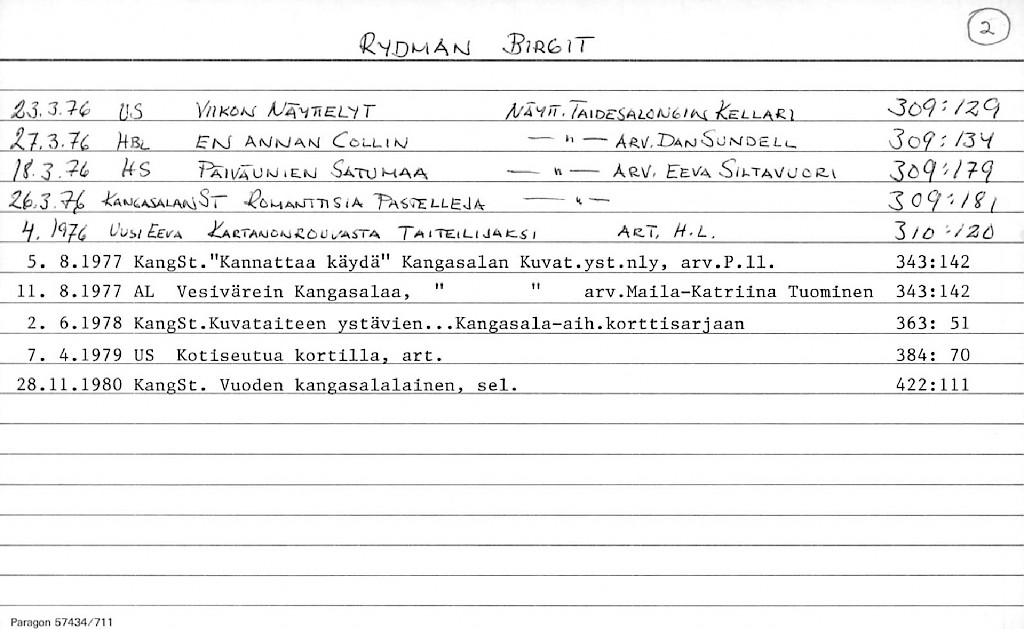 RYDMAN BIRGIT 2
23.3.76 US VIIKON NÄYTTELYT NÄYTT. TAIDESALONGIN KELLARI 309:129
27.3.76 HBL EN ANNAN COLLIN — " — ARV. DAN SUNDELL 309:134
18.3.76 HS PÄIVÄUNIEN SATUMAA — " — ARV. EEVA SILTAVUORI 309:179
26.3.76 KANGASALAN ST ROMANTTISIA PASTELLEJA — " — 309:181
4. 1976 UUSI EEVA KARTANONROUVASTA TAITEILIJAKSI ART. H.L. 310:120
5. 8.1977 KangSt."Kannattaa käydä" Kangasalan Kuvat.yst.nly, arv.P.ll. 343:142
11. 8.1977 AL Vesivärein Kangasalaa, " " arv.Maila-Katriina Tuominen 343:142
2. 6.1978 KangSt.Kuvataiteen ystävien...Kangasala-aih.korttisarjaan 363: 51
7. 4.1979 US Kotiseutua kortilla, art. 384: 70
28.11.1980 KangSt. Vuoden kangasalalainen, sel. 422:111
Paragon 57434/711